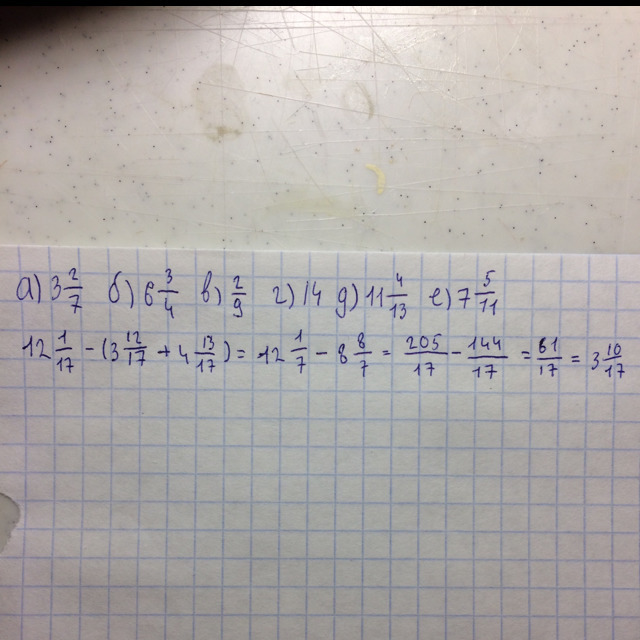 а) 3 2/7 б) 6 3/4 в) 2/9 г) 14 д) 11 4/13 е) 7 5/11
12 1/17 - (3 12/17 + 4 13/17) = 12 1/7 - 8 8/7 = 205/17 - 144/17 = 61/17 = 3 10/17